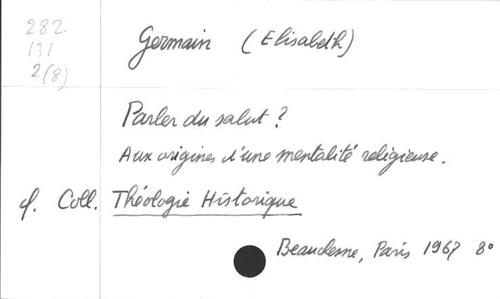 282
131
2(8)
Germain (Elisabeth)
Parler du salut ?
Aux origines d'une mentalité religieuse.
cf. Coll. Théologie Historique
Beauchesne, Paris 1967 8°